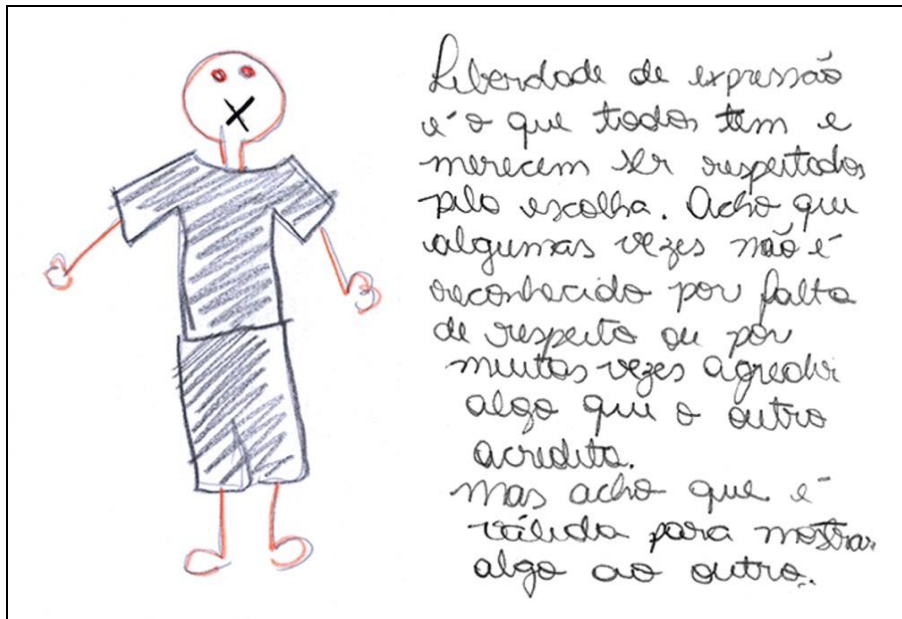 Liberdade de expressão
é o que todos tem e
merecem ser respeitados
pela escolha. Acho que
algumas vezes não é
reconhecido por falta
de respeito ou por
muitas vezes agredir
algo que o outro
acredita.
Mas acho que é
válida para mostrar
algo ao outro.